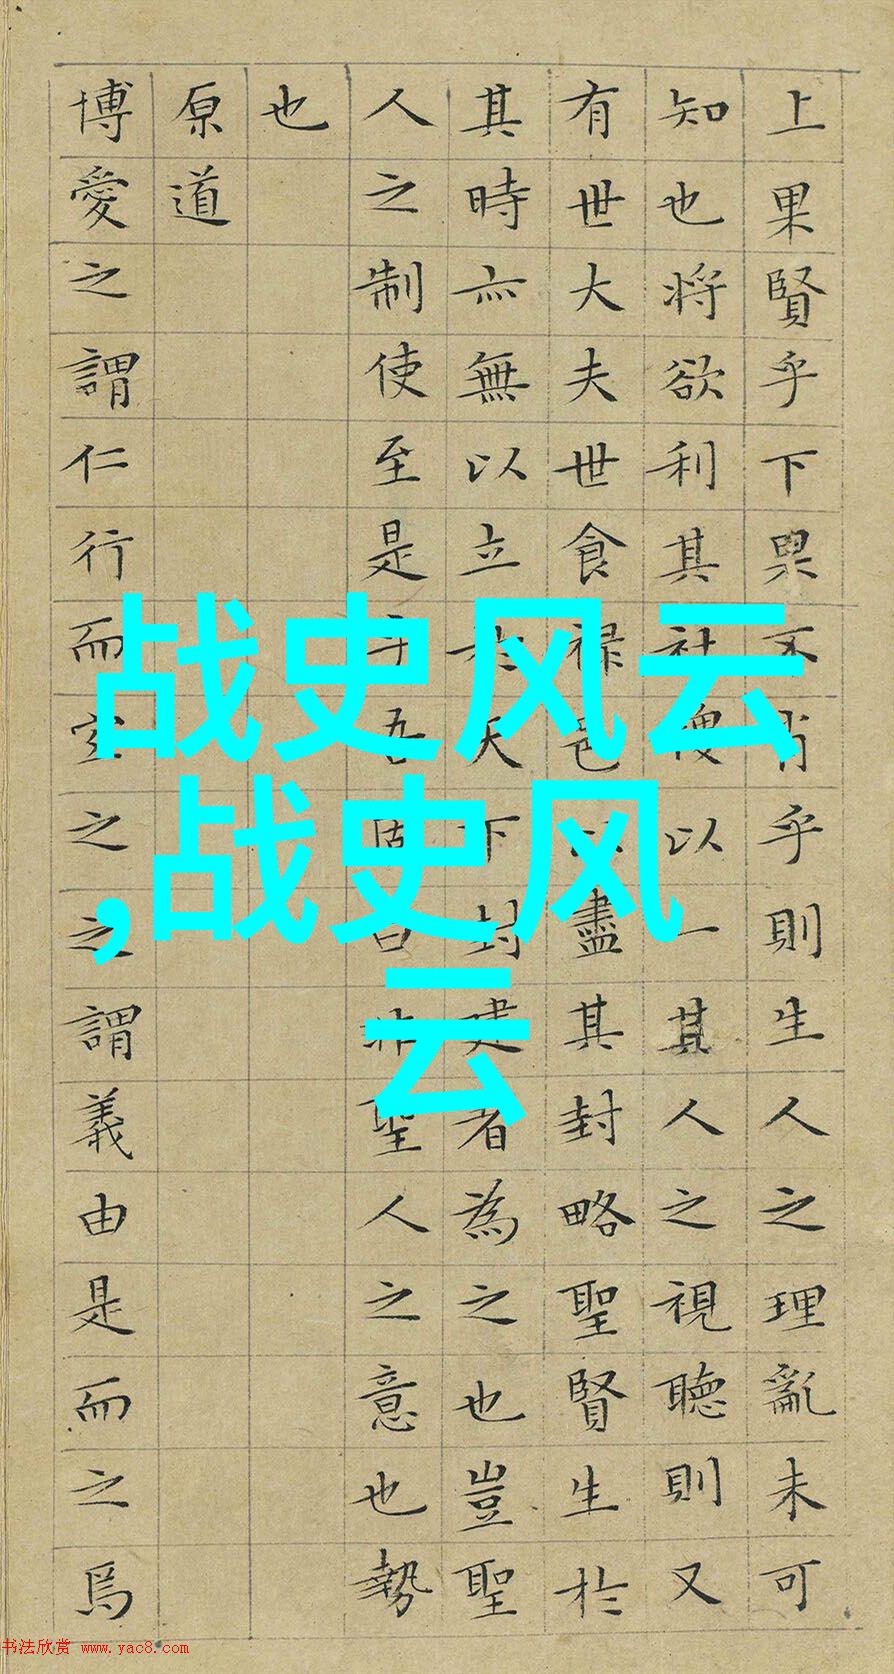 上果賢乎下果不肖乎則生人之理亂未可
知也将欲利其社稷以一其人之視聽則又
有世大夫世食禄邑以盡其封略聖賢生於
其時亦無以立於天下封建者為之也豈聖
人之制使至是乎吾固曰非聖人之意也勢
也
原道
博愛之謂仁行而宜之之謂義由是而之焉
战史风云
,战史风
云
书法欣赏 www.yac8.com